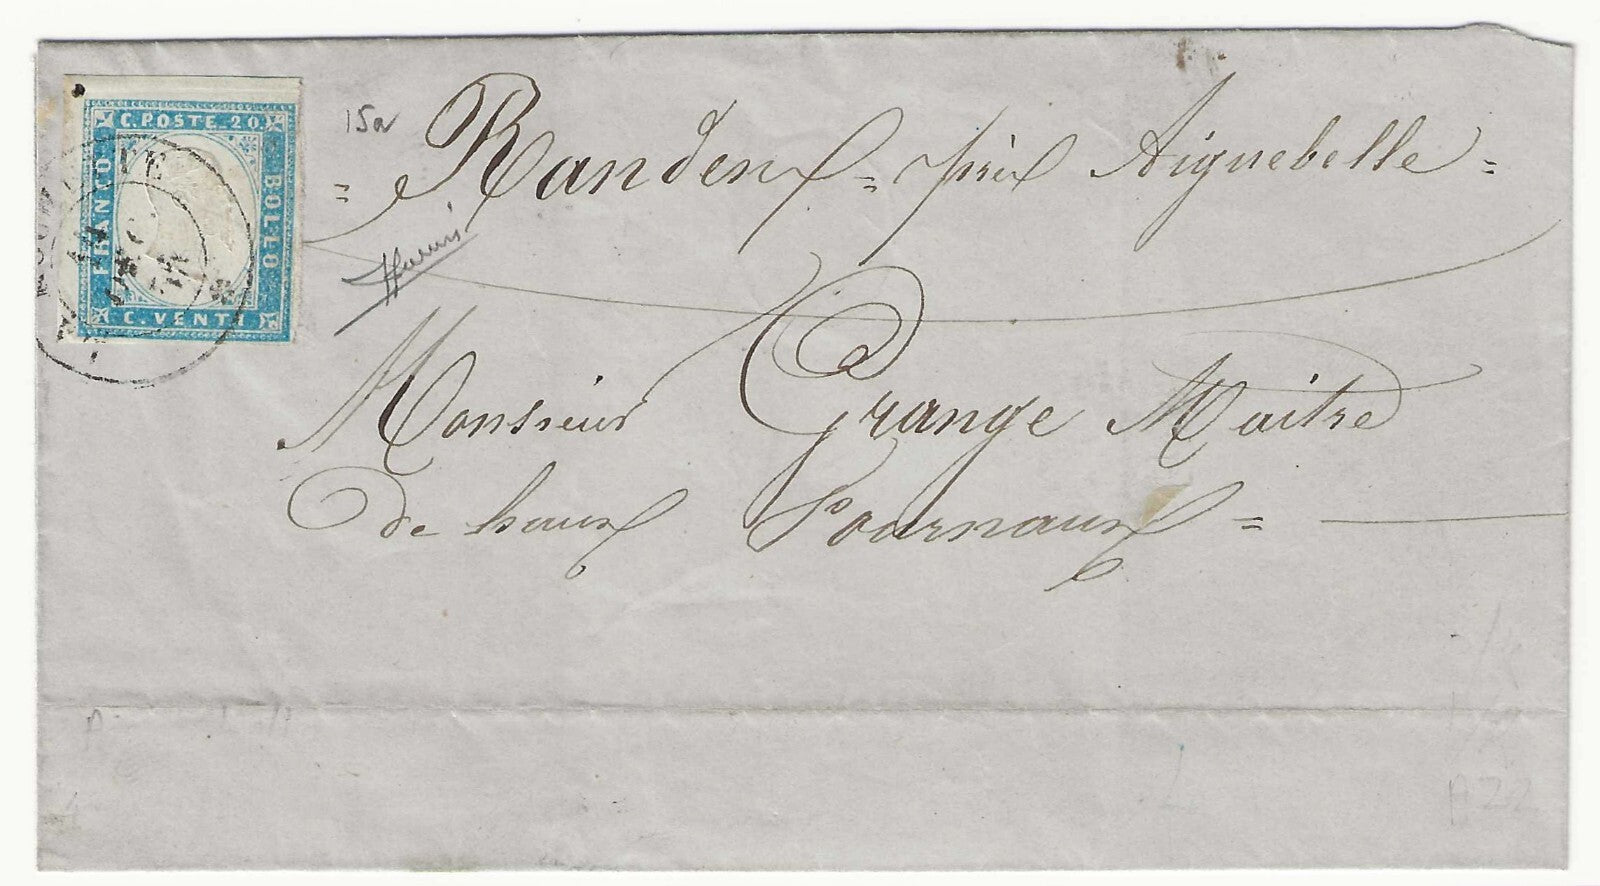 C. POSTE. 20.
FRANCO
BOLLO
C. VENTI
15a
= Randens = près Aiguebelle =
Monsieur Grange Maitre
de haux Fournaux =